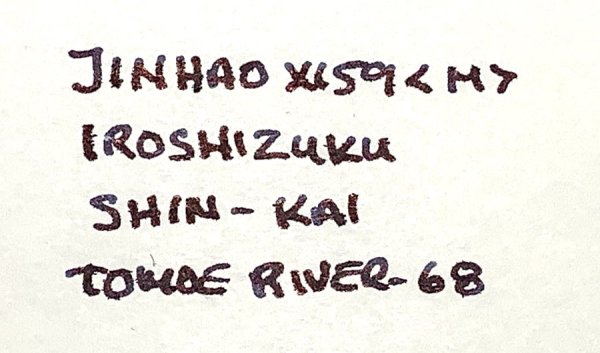 JINHAO X159 <M>
IROSHIZUKU
SHIN-KAI
TOMOE RIVER-68